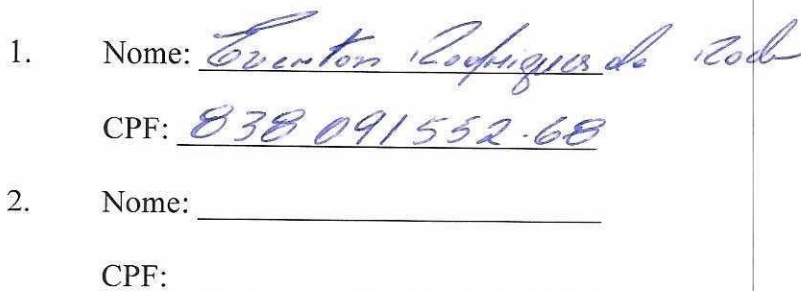 1. Nome: Everton Rodrigues da
CPF: 838 091552-68
2. Nome:
CPF: